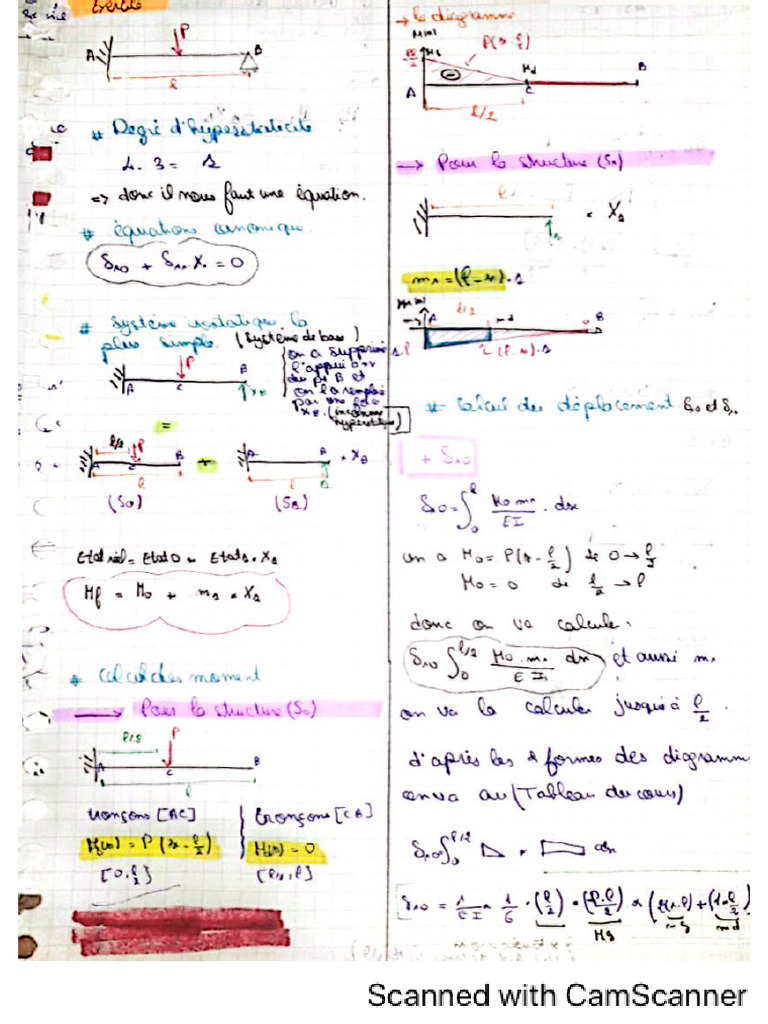 Exercice
P
A
B
l
# Degré d'hyperstaticité
4 - 3 = 1
=> donc il nous faut une équation.
# équations canonique.
δ10 + δ11 . X1 = 0
# Système isostatique le
plus simple. (Système de base)
P
A
C
B
XB
on a supprimé
l'appui
du pt B et
on l'a remplacé
par une force
XB. (inconnue
hyperstatique)
=
l/2
P
A
C
B
l
+
A
B
l
1
* XB
(S0)
(S1)
Etat réel = Etat 0 + Etat 1 * X1
Mf = M0 + m1 * X1
# Calcul des moment
→ Pour la structure (S0)
l/2
P
A
C
B
l
tronçons [AC]
M(x) = P (x - l/2)
[0, l/2]
tronçons [CB]
M(x) = 0
[l/2, l]
→ le diagramme
M(x)
Pl/2
Mg
P(x - l/2)
Md
A
C
B
l/2
→ Pour la structure (S1)
l
1
* X1
m1 = (l - x) . 1
M(x)
l/2
A
B
mg
md
l
(l - x) . 1
# Calcul du déplacement δ10 et δ11
+ δ10
δ10 = ∫0^l M0 m1 / EI . dx
on a M0 = P(x - l/2) de 0 → l/2
M0 = 0 de l/2 → l
donc on va calculer
δ10 ∫0^l/2 M0 . m1 / EI dx et aussi m1
on va le calculer jusqu'à l/2.
d'après les 2 formes des diagramm
on va au (Tableau du cours)
δ10 ∫0^l/2 dx
δ10 = 1/EI * 1/6 . (l/2) * (P.l/2) * (2(1.l) + (1.l/2)
Mg
mg
md
Scanned with CamScanner